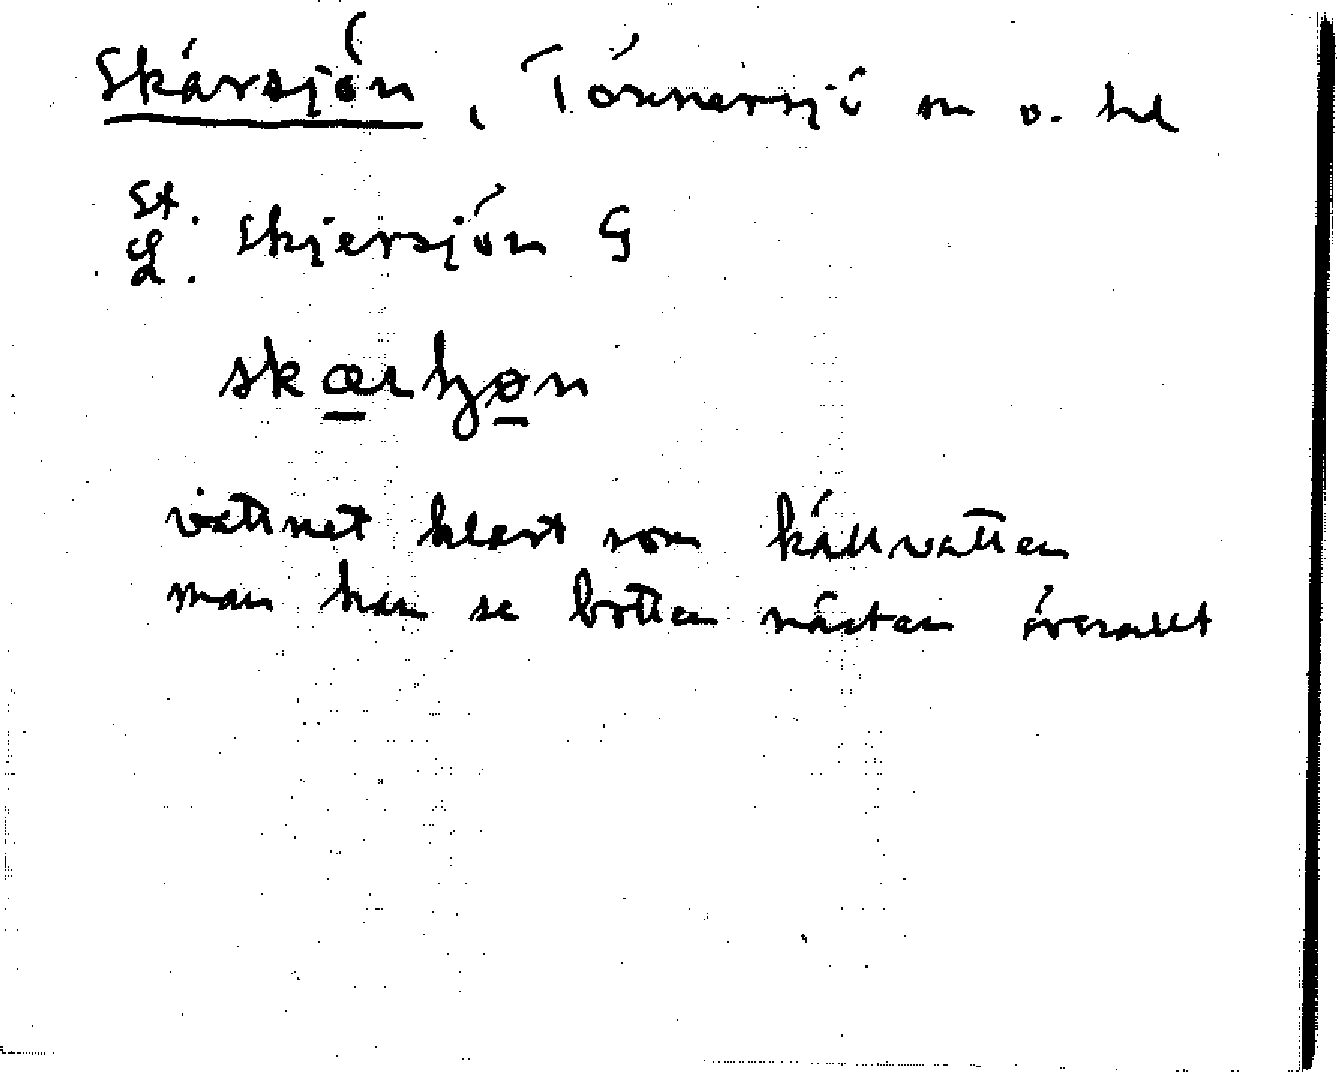 Skärsjön, Tönnersjö sn o. hd
St.
G. Skjersjön G
skærhʒøn
vattnet klart som källvatten
man kan se botten nästan överallt